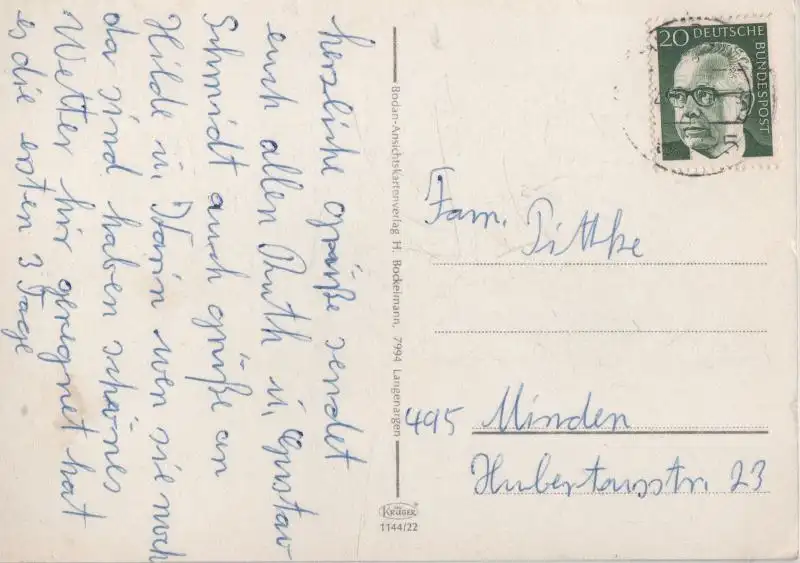 herzliche grüße sendet
euch allen Ruth u, Gustav
Schmidt auch grüße an
Hilde u, wen sie noch
da sind haben schönes
Wetter hir geregnet hat
es die ersten 3 Tage
Bodan-Ansichtskartenverlag H. Bockelmann, 7994 Langenargen
KRÜGER
1144/22
20 DEUTSCHE
BUNDESPOST
Fam. Pittke
495 Minden
Hubertusstr. 23